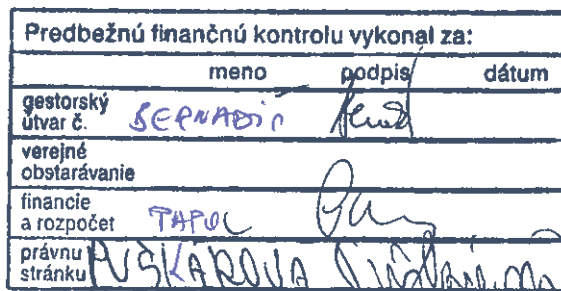 Predbežnú finančnú kontrolu vykonal za:
meno podpis dátum
gestorský
útvar č.
verejné
obstarávanie
financie
a rozpočet
právnu PUŠKÁROVA
stránku